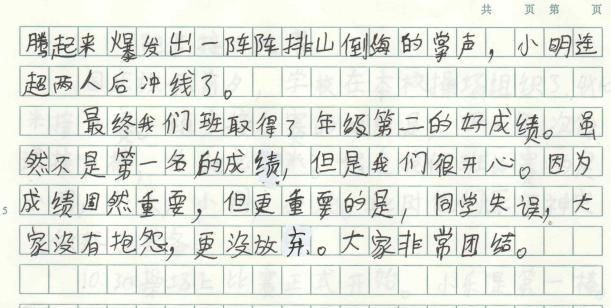 共 页 第 页
腾起来爆发出一阵阵排山倒海的掌声，小明连
超两人后冲线了。
最终我们班取得了年级第二的好成绩。虽
然不是第一名的成绩，但是我们很开心。因为
成绩固然重要，但更重要的是，同学失误，大
家没有抱怨，更没放弃。大家非常团结。
5